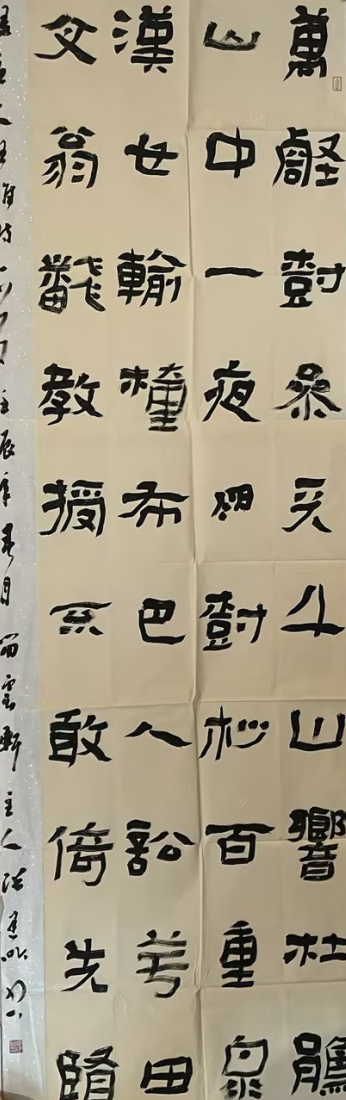 萬壑樹參天千山響杜鵑
山中一夜雨樹杪百重泉
漢女輸橦布巴人訟芋田
文翁翻教授不敢倚先賢
唐人王維詩一首壬辰年春月留雲軒主人